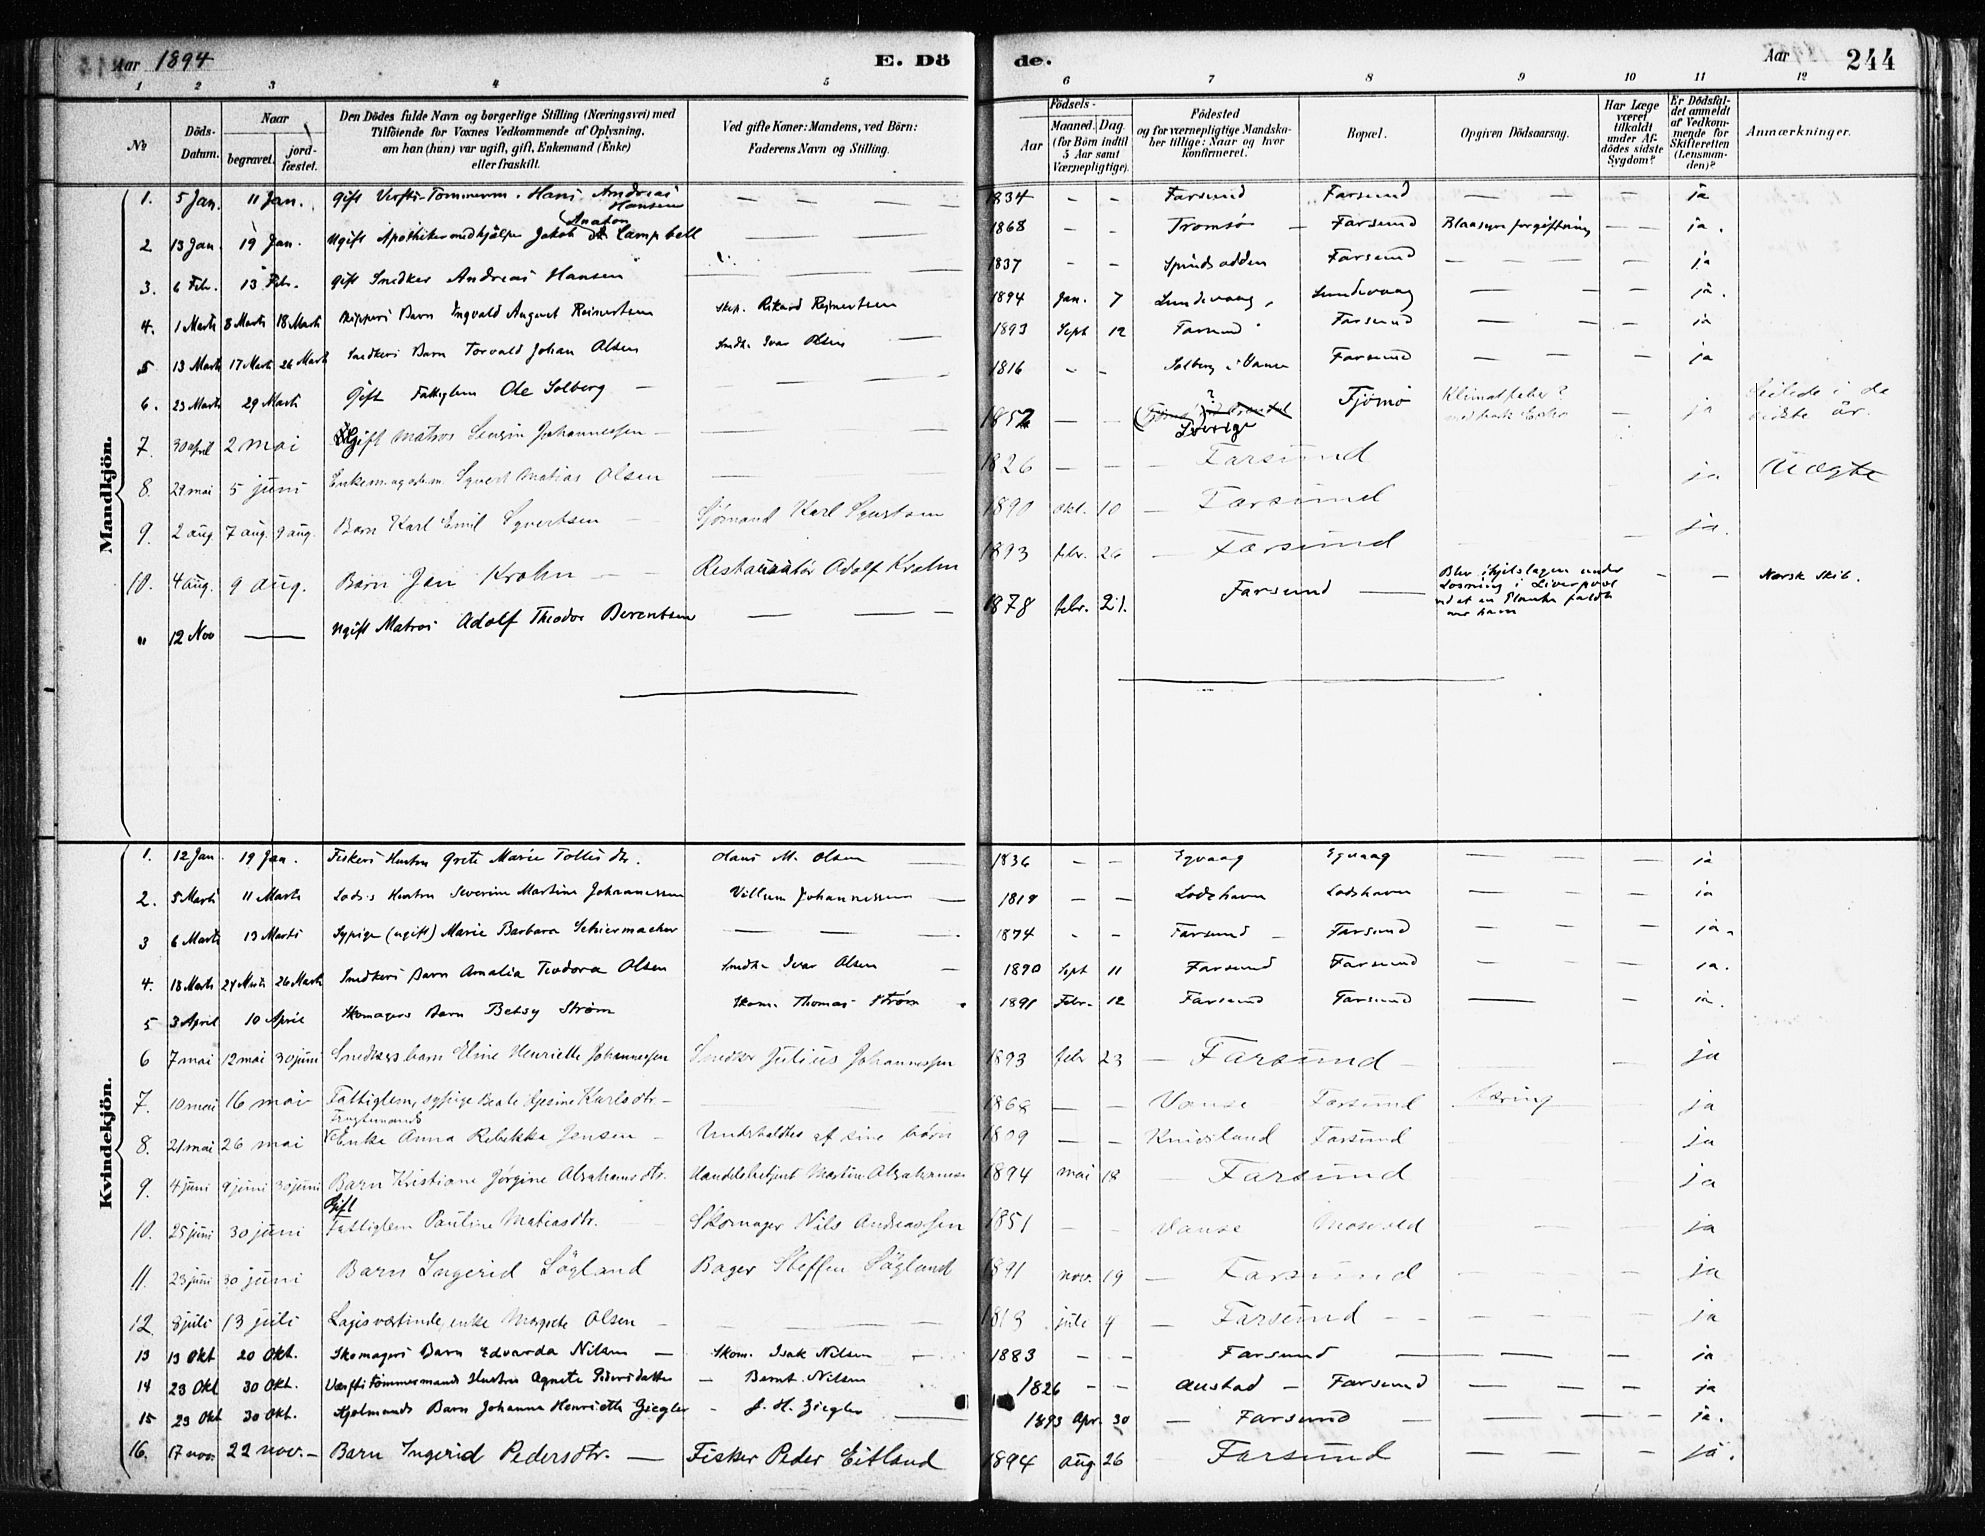 Aar 1894
E. Dö
de.
Aar
244
1 2 3 4 5 6 7 8 9 10 11 12
No
Döds-Datum.
Naar
begravet.
jordfæstet.
Den Dödes fulde Navn og borgerlige Stilling (Næringsvei) med
Tilföiende for Voxnes Vedkommende af Oplysning,
om han (hun) var ugift, gift, Enkemand (Enke)
eller fraskilt.
Ved gifte Koner: Mandens, ved Börn:
Faderens Navn og Stilling.
Födsels-
Aar
Maaned. Dag.
(for Börn indtil
5 Aar samt
Værnepligtige).
Födested
og for værnepligtige Mandska-
ber tillige: Naar og hvor
konfirmeret.
Bopæl.
Opgiven Dödsaarsag.
Har Læge
været
tilkaldt
under Af-
dödes sidste
Sygdom?
Er Dödsfal-
det anmeldt
af Vedkom-
mende for
Skifteretten
(Lensman-
den)?
Anmærkninger.
Mandkjön.
1. 5 Jan. 11 Jan. Gift Verfts-Tømmerm. Hans Andreas Hansen — — — 1834 - - Farsund Farsund — — — ja
2 13 Jan. 19 Jan. Ugift Apothikermedhjælper Jakob Anaton Lampbell — — 1868 - - Tromsø — Farsund Blaasyreforgiftning — — ja.
3. 6 Feb. 13 Feb. Gift Snedker Andreas Hansen — — — 1837 - - Spindsodden Farsund — — — ja
4. 1 Marts 8 Marts 18 Marts Skippers Barn Ingvald August Reinertsen Skip. Rikard Reinertsen 1894 Jan. 7 Lundevaag, Lundevaag — — — ja.
5 13 Marts 17 Marts 26 Marts Snedkers Barn Torvald Johan Olsen Snedk. Ivar Olsen — 1893 Sept 12 Farsund Farsund — — — ja
6. 23 Marts 29 Marts Gift Fattiglem Ole Solberg — — — — 1816 - - Solberg i Vanse Farsund — — — ja
7. 30 april 2 mai Ugift Matros Johannessen — — — 1852 — — ? Sverige Tjömö Klimatfeber? — ja Seilede i de sidste år.
8. 29 mai 5 juni Enkem. Syvert Matias Olsen — 1826 — — — Farsund ja Uægte
9. 2 aug 7 aug. 9 aug. Barn Karl Emil Syvertsen — Sjömand Karl Syvertsen 1890 okt. 10 — Farsund ja.
10. 4 aug. 9 aug. Barn Jan Krohn — — Restauratör Adolf Krohn 1893 febr. 26 — Farsund
" 12 Nov — Ugift Matros Adolf Theodor Berentsen — — — 1878 febr. 21. Farsund — Blev ihjelslagen under Losning i Liverpool ved at en Planke faldt over ham — — Norsk Skib.
Kvindekjön.
1. 12 Jan. 19 Jan. Fiskers Hustru Grete Marie Tollisdtr. Hans M. Olsen — 1836 - - Egvaag Egvaag — — — ja
2. 5 Marts 11 Marts Lods's Hustru Severine Martine Johannessen Villum Johannessen — 1819 - - Lodshavn Lodshavn — — — ja
3 6 Marts 13 Marts Sypige (ugift) Marie Barbara Schiermacher — — — 1874 - - Farsund — Farsund — — — ja.
4. 18 Marts 24 Marts 26 Marts Snedkers Barn Amalia Teodora Olsen Snedk. Ivar Olsen — 1890 Sept 11 Farsund Farsund — — — ja.
5 3 April 10 April Skomagers Barn Betsy Strøm Skom. Thomas Strøm 1891 Febr. 12 Farsund Farsund — — — ja.
6 7 mai 12 mai 30 juni Snedkers barn Eline Henriette Johannessen Snedker Julius Johannessen 1893 febr 23 — Farsund — — ja
7. 10 mai 16 mai Fattiglem, sypige Beate Gesine Karlsdtr. — 1868 — — Vanse Farsund Tæring — ja
8. 21 mai 26 mai Enke Anna Rebekka Jensen — Underholdtes af sine börn 1809 — — Kniveland Farsund — ja
9. 4 juni 9 juni 30 juni Barn Kristiane Jørgine Abrahamsdtr. Handelsbetjent Martin Abrahamsen 1894 mai 18 — Farsund — ja
10. 25 juni 30 juni Gift Fattiglem Pauline Matiasdtr. Skomager Nils Andreassen 1851 - - Vanse Mosvold — — ja
11. 23 juni 30 juni Barn Ingerid Lögland Bager Steffen Lögland 1891 nov. 19 — Farsund — — — ja
12 8 juli 13 juli Enke Margrete Olsen — — — 1813 juli 4 — Farsund - - — — — ja
13 13 Okt 20 Okt. Skomagers Barn Edvarda Nilsen — Skom. Isak Nilsen — 1883 - - Farsund — — — ja
14 23 Okt 30 Okt. Værftstømmermands Hustru Agnete Pedersdatter — Bernt Nilsen 1826 - - Austad — Farsund — — — ja
15 23 Okt 30 Okt. Barn Johanna Henriette Ziegler - J. H. Ziegler — 1893 Apr. 30 — Farsund — — — — ja.
16. 17 nov. 22 nov. — Barn Ingerid Pedersdtr. — Fisker Peder Eitland 1894 aug 26 — Farsund — — — ja.